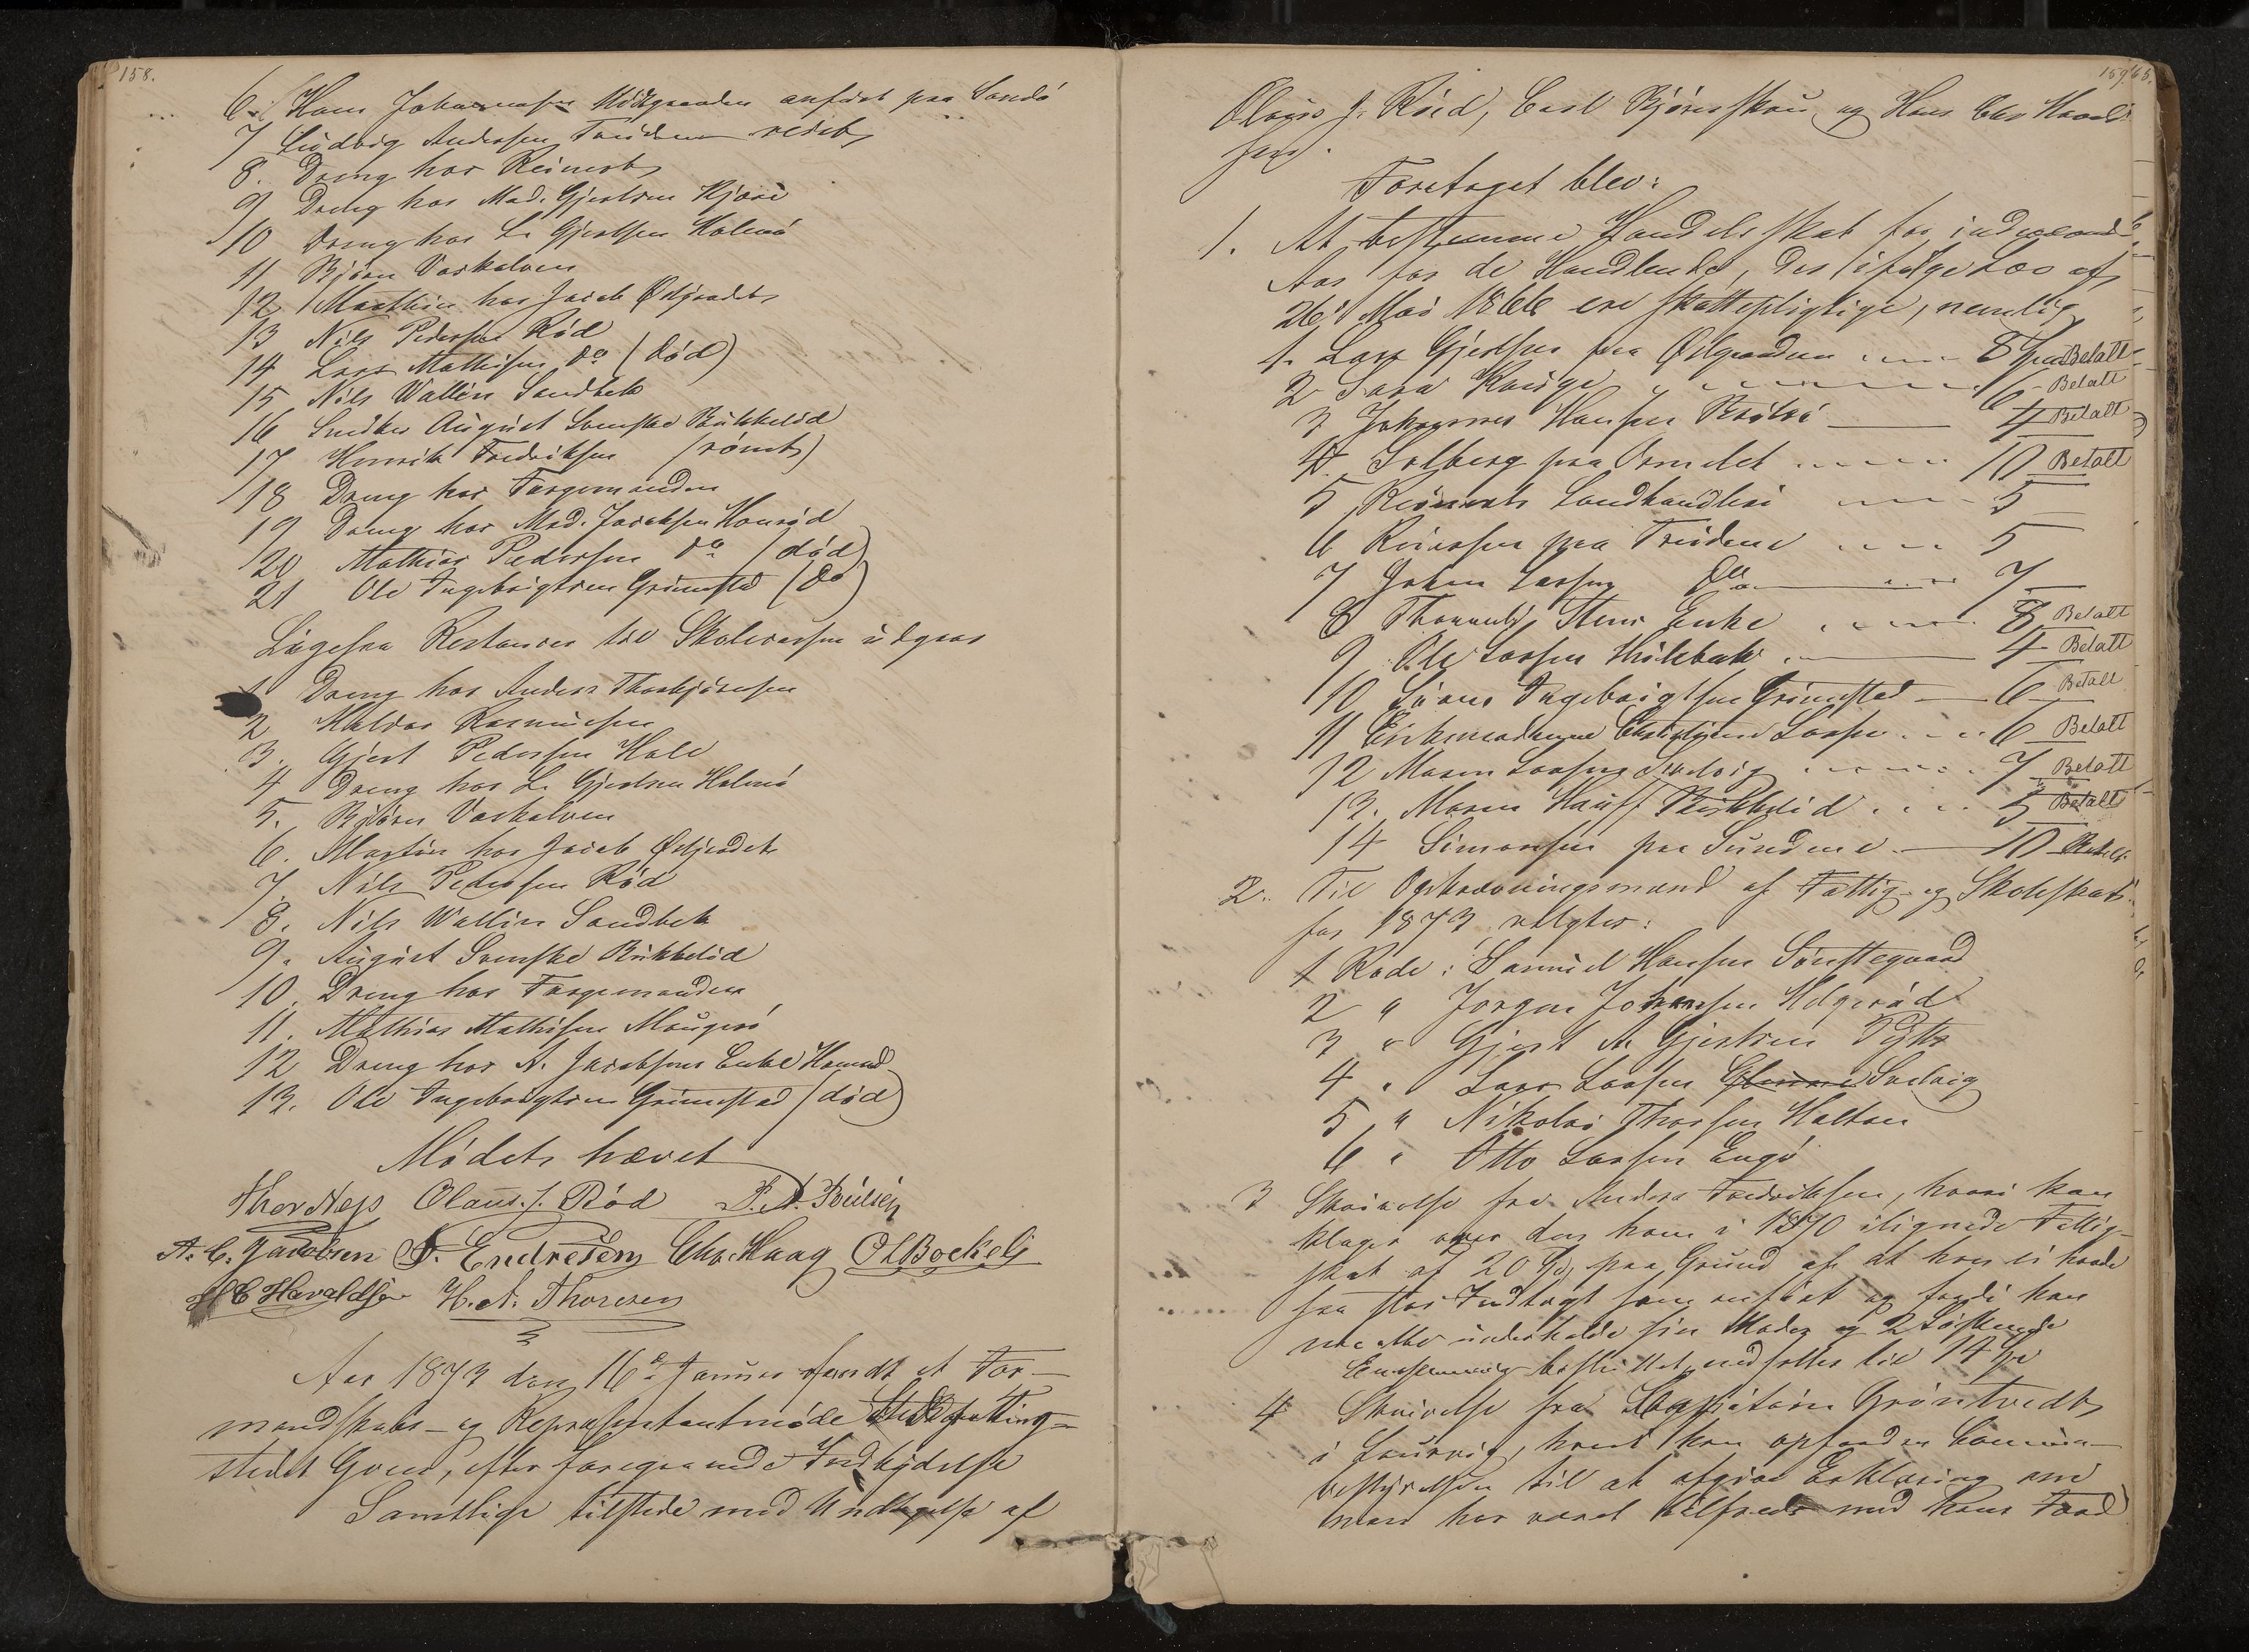 158.
6. Hans Johannesen anført paa Sandø
7 Ludvig Andersen reist
8. Dreng hos Reinert
9 Dreng hos Mad. Gjertsen Kjære
10 Dreng hos L. Gjertsen Holmø
11 Bjørn Vaskalven
12 Marthin hos Jacob Østjordet
13 Nils Pedersen Rød
14 Lars Mathisen do (død)
15 Nils Wallin Sandbek
16 Snedker August Svenske Bukkelid
17 Henrik Fredriksen (rømt)
18 Dreng hos Fargemanden
19 Dreng hos Mad. Jacobsen
20 Mathias Pedersen do (død)
21 Ole Ingebrigtsen Grimstad (do)
Ligesaa Restancer til Skolecassen udgaar
1 Dreng hos Anders Thorbjørnsen
2 Halvor Rasmussen
3. Gjert Pedersen Hale
4 Dreng hos L. Gjertsen Holmø
5. Bjørn Vaskalven
6. Martin hos Jacob Østjordet
7. Nils Pedersen Rød
8. Nils Wallin Sandbek
9. August Svenske Bukkelid
10. Dreng hos Fargemanden
11. Mathias Mathisen Maugerø
12 Dreng hos A. Jacobsens Enke
13. Ole Ingebrigtsen Grimstad (død)
Mødet hævet
Thor Næs Olaus J. Rød P. A. Poulsen
A. C. Jacobsen F. Endresen Chr. Haag O L Bockelie
H C Haraldsen H. A. Thoresen
Aar 1873 den 16de Januar afholdt et For-
mandskabs- og Repræsentantmøde paa Thing-
stedet Goen, efter foregaaende Indbydelse
Samtlige tilstede med Undtagelse af
159.
Olaus J. Rød, Carl og Hans Chr Harald
sen.
Foretaget blev:
1. At bestemme Handelsskat for indeværende
Aar for de Handlende, der ifølge Lov af
26de Mai 1866 ere skattepligtige, nemlig
1. Lars Gjertsen paa Ølgrunden 8 Betalt
2 Sara 6 Betalt
3 Johannes Hansen 4 Betalt
4. Solberg paa 10 Betalt
5 Reinerts Landhandleri 5
6 Reiersen paa Truidene 5
7 Johan Larsen do 7
8 Enke 8 Betalt
9 Ole Larsen 4 Betalt
10 Søren Ingebrigtsen Grimstad 6 Betalt
11 Enkemadame Larsen 6 Betalt
12 Maren Larsen Sælvig 7 Betalt
13. Maren Bukkelid 5 Betalt
14 Simonsen paa Sundene 10 Betalt
2. Til Opkrævningsmænd af Fattig- og Skoleskat
for 1873 valgtes:
1 Rode: Samuel Hansen Sønstegaard
2 " Jørgen Johansen Helgerød
3 " Gjert A. Gjertsen Pytte
4 " Lars Larsen Sælvig
5 " Nikolai Thorsen Holtan
6 " Otto Larsen Engø
3 Skrivelse fra Anders Fredriksen, hvori han
klager over den ham i 1870 ilignede Fattig-
skat af 20 paa Grund af at han ei havde
saa stor Indtægt som anført og fordi han
maatte underholde sin Moder og 2 Søskende
Eenstemmig besluttet nedsattes til 14
4 Skrivelse fra Grøntvedt
i Laurvig, hvori han opfordrer Commune-
bestyrelsen til at afgive Erklæring om
man har været tilfreds med hans Færd